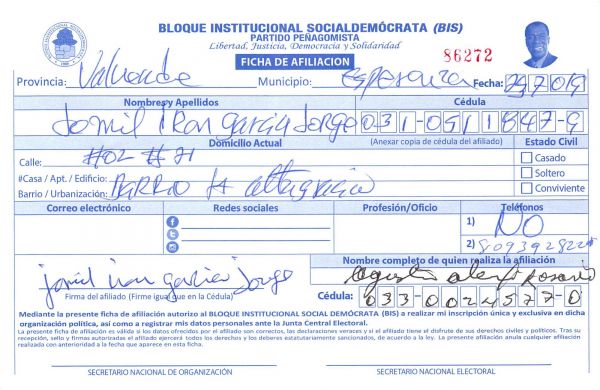 BLOQUE INSTITUCIONAL SOCIALDEMÓCRATA (BIS)
PARTIDO PEÑAGOMISTA
Libertad, Justicia, Democracia y Solidaridad
FICHA DE AFILIACION
86272
Provincia: Valverde Municipio: Esperanza Fecha:
Nombres y Apellidos Cédula
Jomil Iran Garcia Jorge 031-0511847-9
Domicilio Actual (Anexar copia de cédula del afiliado) Estado Civil
Calle: #02 # 21 Casado
#Casa / Apt. / Edificio: Soltero
Barrio / Urbanización: BARRIO LA altagracia Conviviente
Correo electrónico Redes sociales Profesión/Oficio Teléfonos
1) NO
2)
Nombre completo de quien realiza la afiliación
jomil iran garcia Jorge Rosario
Firma del afiliado (Firme igual que en la Cédula) Cédula: 033-0024577-0
Mediante la presente ficha de afiliación autorizo al BLOQUE INSTITUCIONAL SOCIAL DEMÓCRATA (BIS) a realizar mi inscripción única y exclusiva en dicha
organización política, así como a registrar mis datos personales ante la Junta Central Electoral.
La presente ficha de afiliación es válida si los datos ofrecidos por el afiliado son correctos, las declaraciones veraces y si el afiliado tiene el disfrute de sus derechos civiles y políticos. Tras su
recepción, sello y firmas autorizadas el afiliado ejercerá todos los derechos y los deberes estatutariamente sancionados, de acuerdo a la ley. La presente afiliación anula cualquier afiliación
realizada con anterioridad a la fecha que aparece en esta ficha.
SECRETARIO NACIONAL DE ORGANIZACIÓN SECRETARIO NACIONAL ELECTORAL